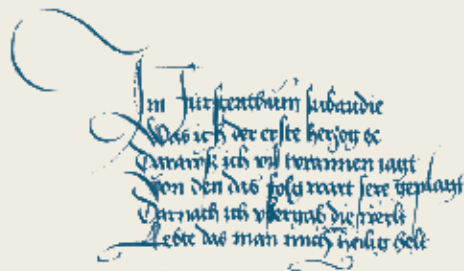 Im Fürstenthum subaudie
Was ich der erste herzog
Darauß ich vil tirannen iagt
Von den das folg wart sere geplagt
Darnach ich vbergab die welt
Lebte das man mich heilig helt